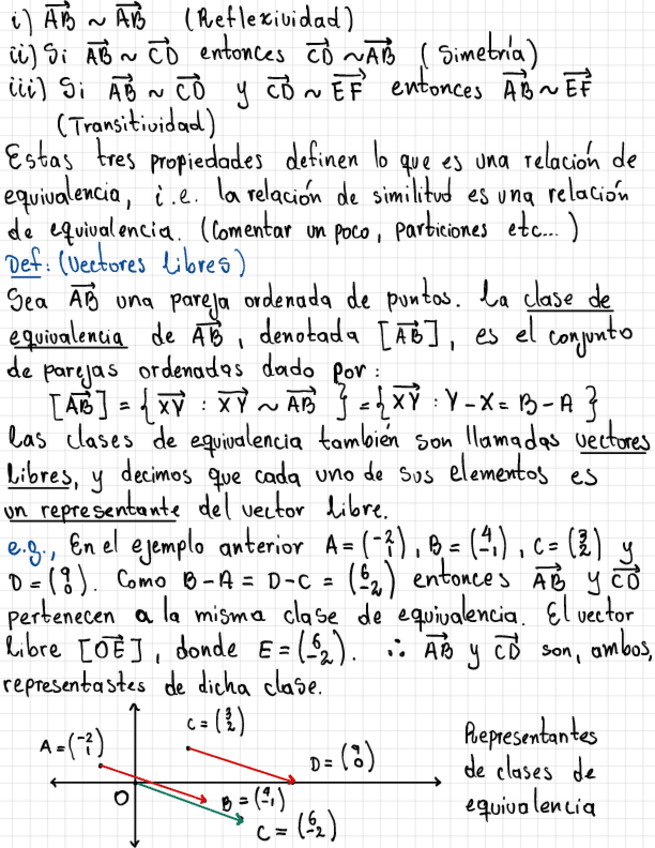 i) $\overrightarrow{AB} \sim \overrightarrow{AB}$ (Reflexividad)
ii) Si $\overrightarrow{AB} \sim \overrightarrow{CD}$ entonces $\overrightarrow{CD} \sim \overrightarrow{AB}$ (Simetría)
iii) Si $\overrightarrow{AB} \sim \overrightarrow{CD}$ y $\overrightarrow{CD} \sim \overrightarrow{EF}$ entonces $\overrightarrow{AB} \sim \overrightarrow{EF}$
(Transitividad)
Estas tres propiedades definen lo que es una relación de
equivalencia, i.e. la relación de similitud es una relación
de equivalencia. (Comentar un poco, particiones etc...)
Def: (Vectores libres)
Sea $\overrightarrow{AB}$ una pareja ordenada de puntos. La clase de
equivalencia de $\overrightarrow{AB}$, denotada $[\overrightarrow{AB}]$, es el conjunto
de parejas ordenadas dado por:
$[\overrightarrow{AB}] = \{ \overrightarrow{XY} : \overrightarrow{XY} \sim \overrightarrow{AB} \} = \{ \overrightarrow{XY} : Y - X = B - A \}$
Las clases de equivalencia también son llamadas vectores
libres, y decimos que cada uno de sus elementos es
un representante del vector libre.
e.g., En el ejemplo anterior $A = \binom{-2}{1}$, $B = \binom{4}{-1}$, $C = \binom{3}{2}$ y
$D = \binom{9}{0}$. Como $B - A = D - C = \binom{6}{-2}$ entonces $\overrightarrow{AB}$ y $\overrightarrow{CD}$
pertenecen a la misma clase de equivalencia. El vector
libre $[\overrightarrow{OE}]$, donde $E = \binom{6}{-2}$. ∴ $\overrightarrow{AB}$ y $\overrightarrow{CD}$ son, ambos,
representastes de dicha clase.
$C = \binom{3}{2}$
$A = \binom{-2}{1}$
$D = \binom{9}{0}$
O
$B = \binom{4}{-1}$
$C = \binom{6}{-2}$
Representantes
de clases de
equivalencia